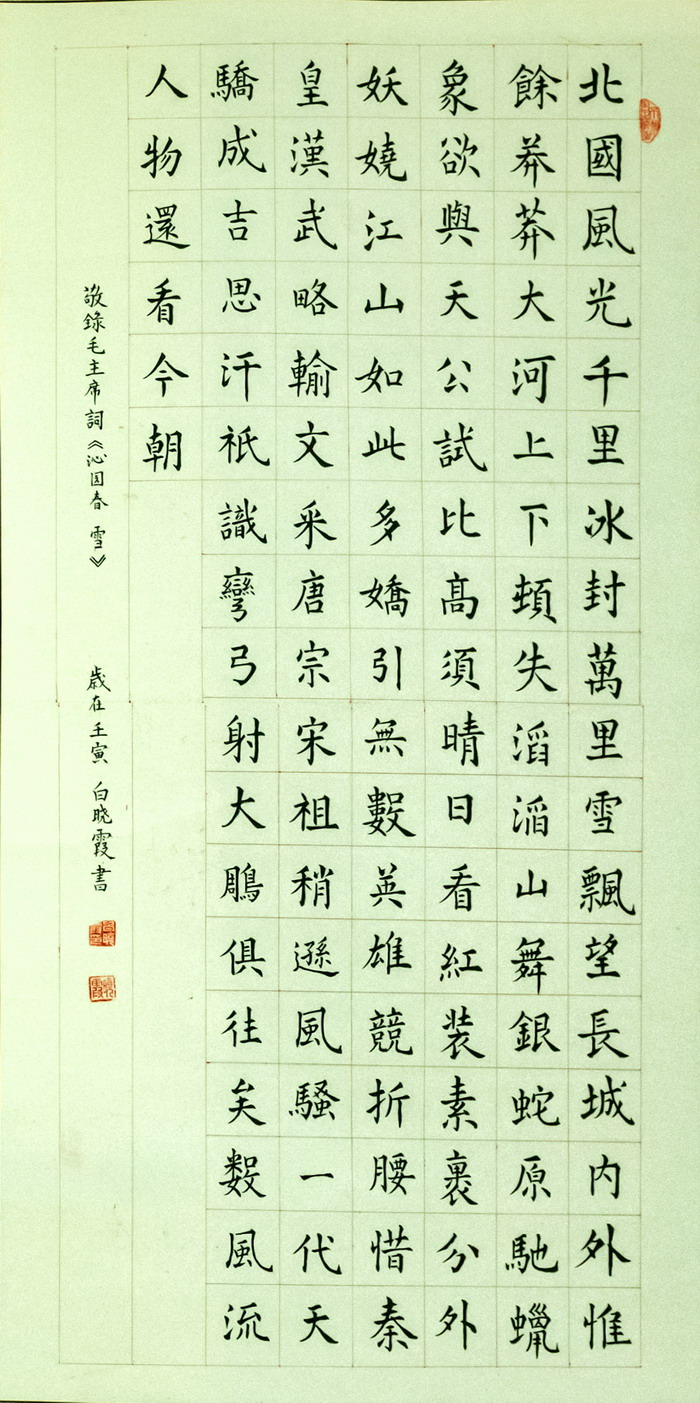 北國風光千里冰封萬里雪飄望長城内外惟
餘莽莽大河上下頓失滔滔山舞銀蛇原馳蠟
象欲與天公試比髙須晴日看紅装素裹分外
妖嬈江山如此多嬌引無數英雄競折腰惜秦
皇漢武略輸文采唐宗宋祖稍遜風騷一代天
驕成吉思汗祇識彎弓射大鵰俱往矣數風流
人物還看今朝
敬錄毛主席詞《沁园春 雪》 歲在壬寅 白晓霞書